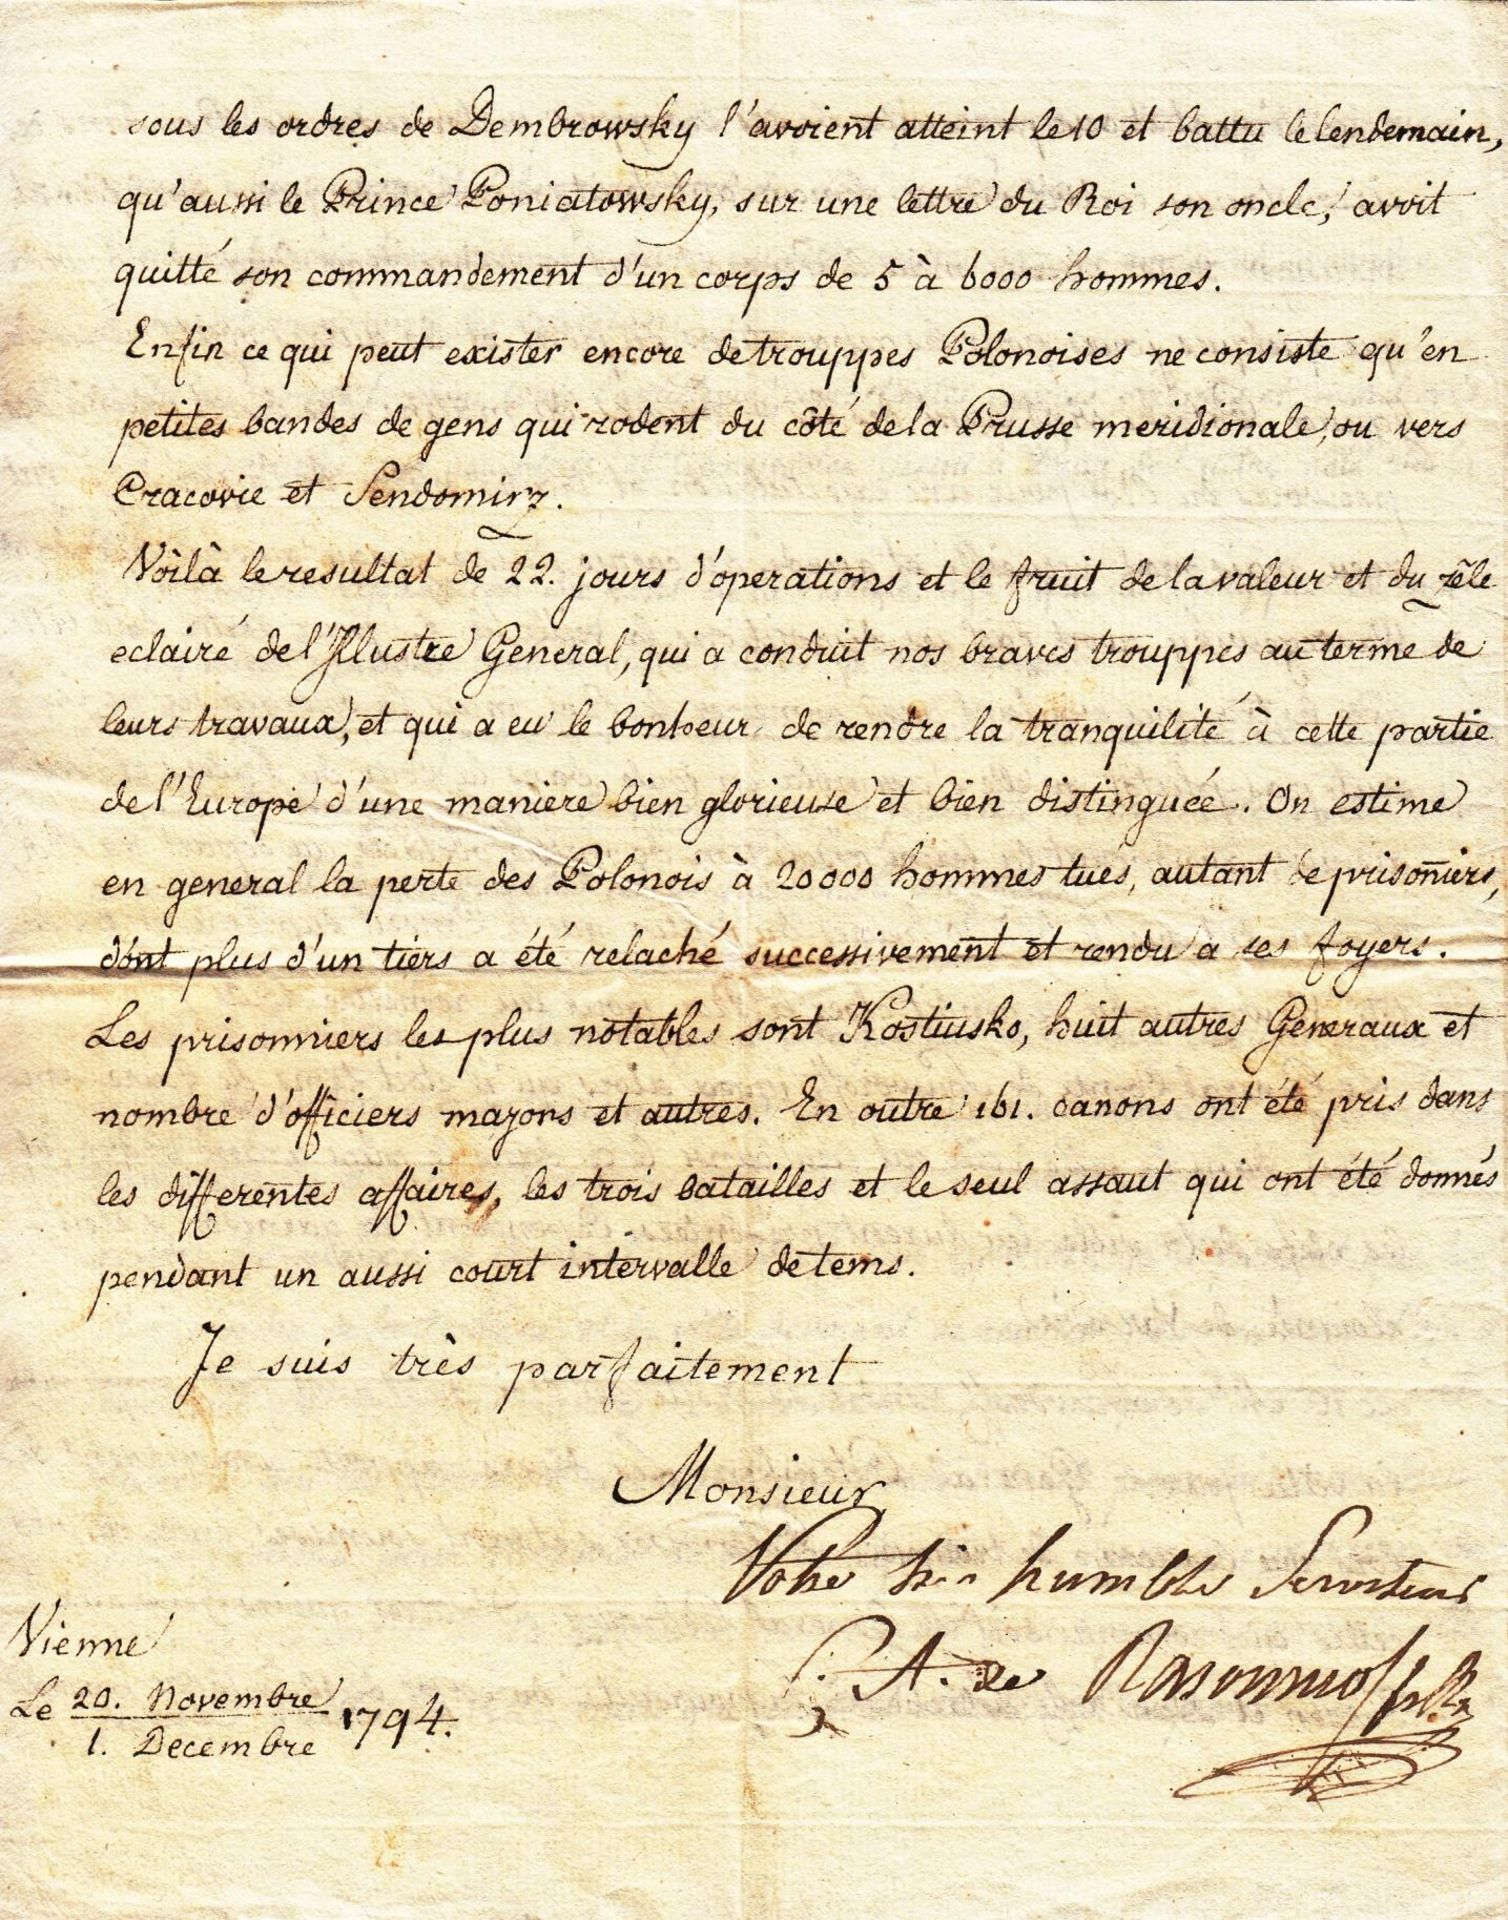 sous les ordres de Dembrowsky l'avoient atteint le 10 et battu le lendemain,
qu'aussi le Prince Poniatowsky, sur une lettre du Roi son oncle, avoit
quitté son commandement d'un corps de 5 à 6000 hommes.
Enfin ce qui peut exister encore de trouppes Polonoises ne consiste qu'en
petites bandes de gens qui rodent du côté de la Prusse meridionale, ou vers
Cracovie et Sendomirz.
Voilà le resultat de 22. jours d'operations et le fruit de la valeur et du zêle
eclairé de l'Illustre General, qui a conduit nos braves trouppes au terme de
leurs travaux, et qui a eu le bonheur de rendre la tranquilité à cette partie
de l'Europe d'une maniere bien glorieuse et bien distinguée. On estime
en general la perte des Polonois à 20000 hommes tués, autant de prisoñiers,
dont plus d'un tiers a été relaché successivement et rendu a ses foyers.
Les prisonniers les plus notables sont Kostiusko, huit autres Generaux et
nombre d'officiers majors et autres. En outre 161. canons ont été pris dans
les differentes affaires, les trois batailles et le seul assaut qui ont été donnés
pendant un aussi court intervalle de tems.
Je suis très parfaitement
Monsieur
Votre très humble Serviteur
A. de Rasoumoffsky
Vienne
Le 20. Novembre
1. Decembre 1794.